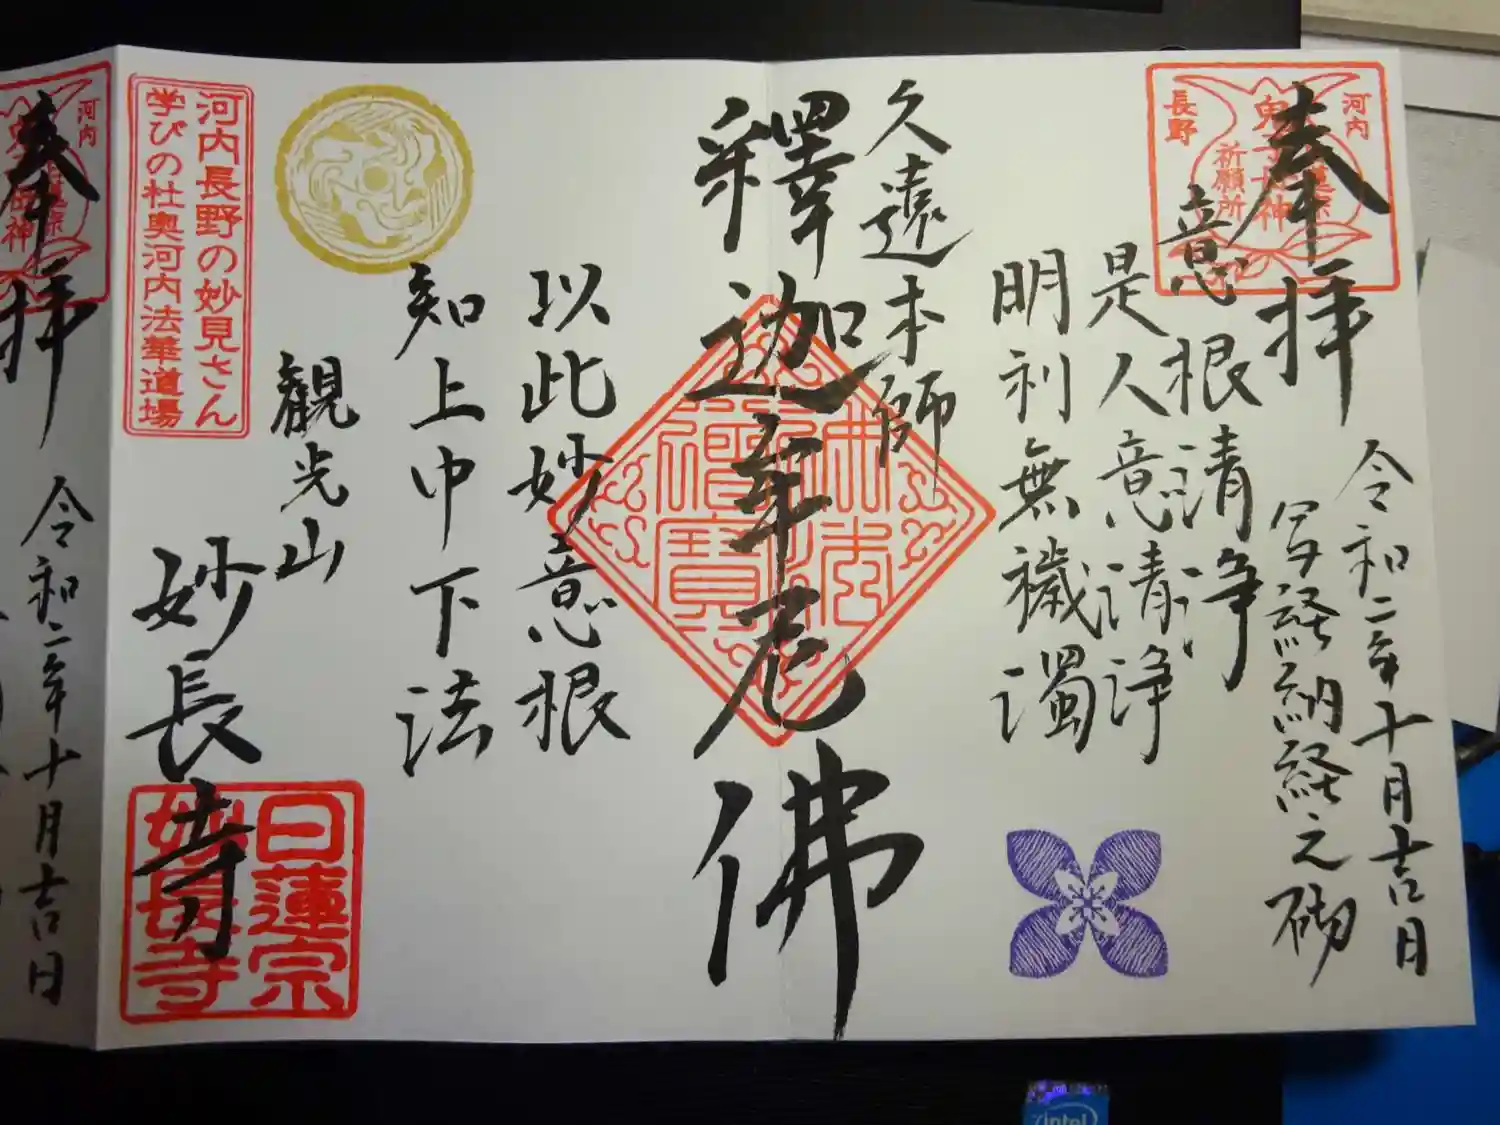 奉拝
河内
長野
鬼子母神
祈願所
令和二年十月吉日
写経納経之砌
意根清浄
是人意清浄
明利無穢濁
久遠本師
釋迦牟尼佛
佛法
僧寳
以此妙意根
知上中下法
観光山
妙長寺
日蓮宗
妙長寺
河内長野の妙見さん
学びの杜奥河内法華道場
奉拝
河内
令和二年十月吉日
intel